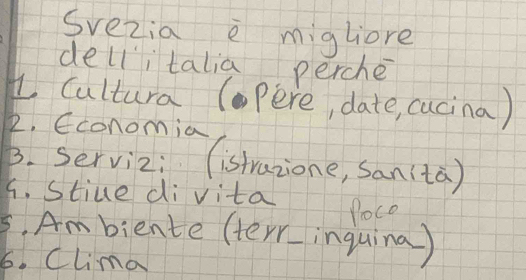 Svezia è migliore
dell'italia perchè
1. Cultura (opere, date, cucina)
2. Economia
3. Servizi: (istruzione, Sanità)
4. Stiue di vita
Poco
5. Ambiente (terr_ inquina_)
6. Clima